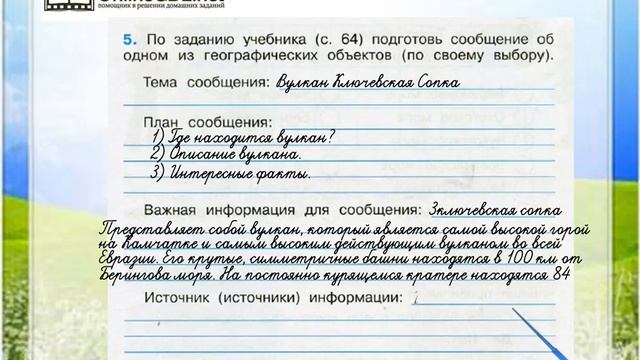 помощник в решении домашних заданий
5. По заданию учебника (с. 64) подготовь сообщение об
одном из географических объектов (по своему выбору).
Тема сообщения: Вулкан Ключевская Сопка
План сообщения:
1) Где находится вулкан?
2) Описание вулкана.
3) Интересные факты.
Важная информация для сообщения: Зключевская сопка
Представляет собой вулкан, который является самой высокой горой
на Камчатке и самым высоким действующим вулканом во всей
Евразии. Его крутые, симметричные башни находятся в 100 км от
Берингова моря. На постоянно курящемся кратере находятся 84
Источник (источники) информации: